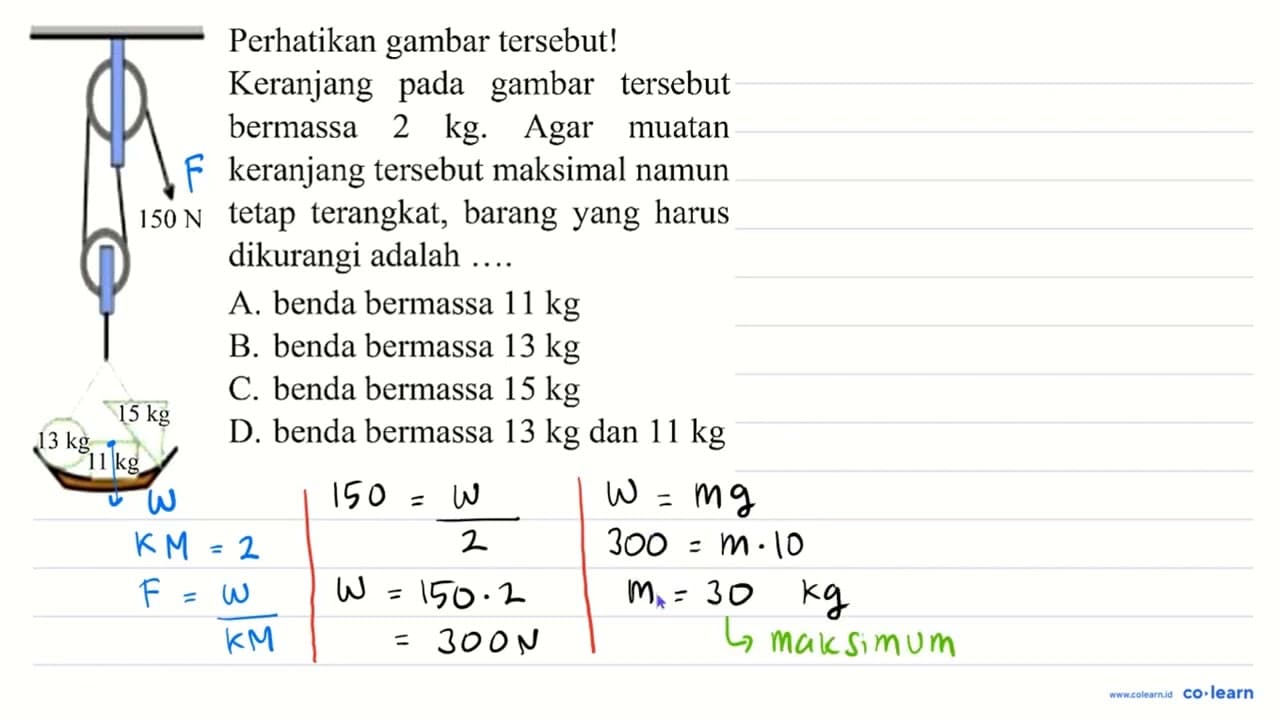 Perhatikan gambar tersebut!
Keranjang pada gambar tersebut
bermassa 2 kg. Agar muatan
keranjang tersebut maksimal namun
tetap terangkat, barang yang harus
dikurangi adalah ....
A. benda bermassa 11 kg
B. benda bermassa 13 kg
C. benda bermassa 15 kg
D. benda bermassa 13 kg dan 11 kg
F
150 N
15 kg
13 kg
11 kg
W
KM = 2
F = W
KM
150 = W
2
W = 150.2
= 300N
W = mg
300 = m.10
m = 30 kg
↳ maksimum
www.colearn.id co·learn